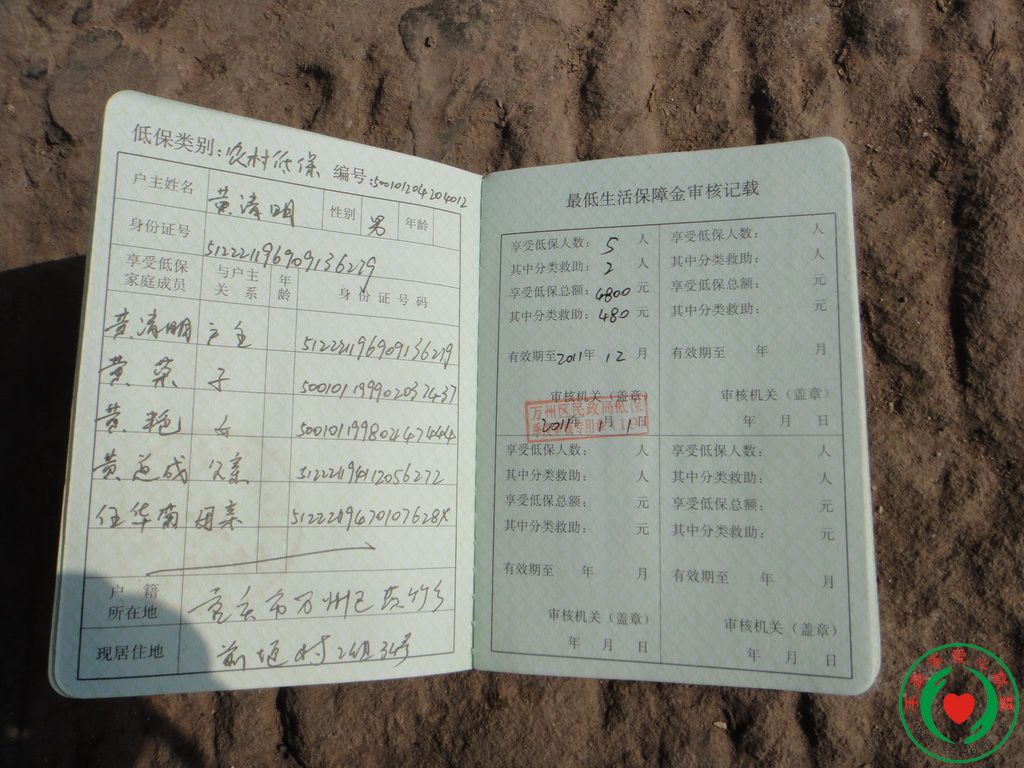 低保类别:农村低保 编号:500101204204012
户主姓名 黄清明 性别 男 年龄
身份证号 512221196909136279
享受低保家庭成员 与户主关系 年龄 身份证号码
黄清明 户主 512221196909136279
黄荣 子 500101199902037437
黄艳 女 500101199802474444
黄益成 父亲 512221194112056272
任华菊 母亲 51222119470107628X
户籍所在地 重庆市万州区燕
现居住地 村2组34号
最低生活保障金审核记载
享受低保人数: 5 人
其中分类救助: 2 人
享受低保总额: 4800 元
其中分类救助: 480 元
有效期至2011年 12 月
审核机关(盖章)
万州区民政局低保
2011年 1月 1日
享受低保人数: 人
其中分类救助: 人
享受低保总额: 元
其中分类救助: 元
有效期至 年 月
审核机关(盖章)
年 月 日
享受低保人数: 人
其中分类救助: 人
享受低保总额: 元
其中分类救助: 元
有效期至 年 月
审核机关(盖章)
年 月 日
享受低保人数: 人
其中分类救助: 人
享受低保总额: 元
其中分类救助: 元
有效期至 年 月
审核机关(盖章)
年 月 日